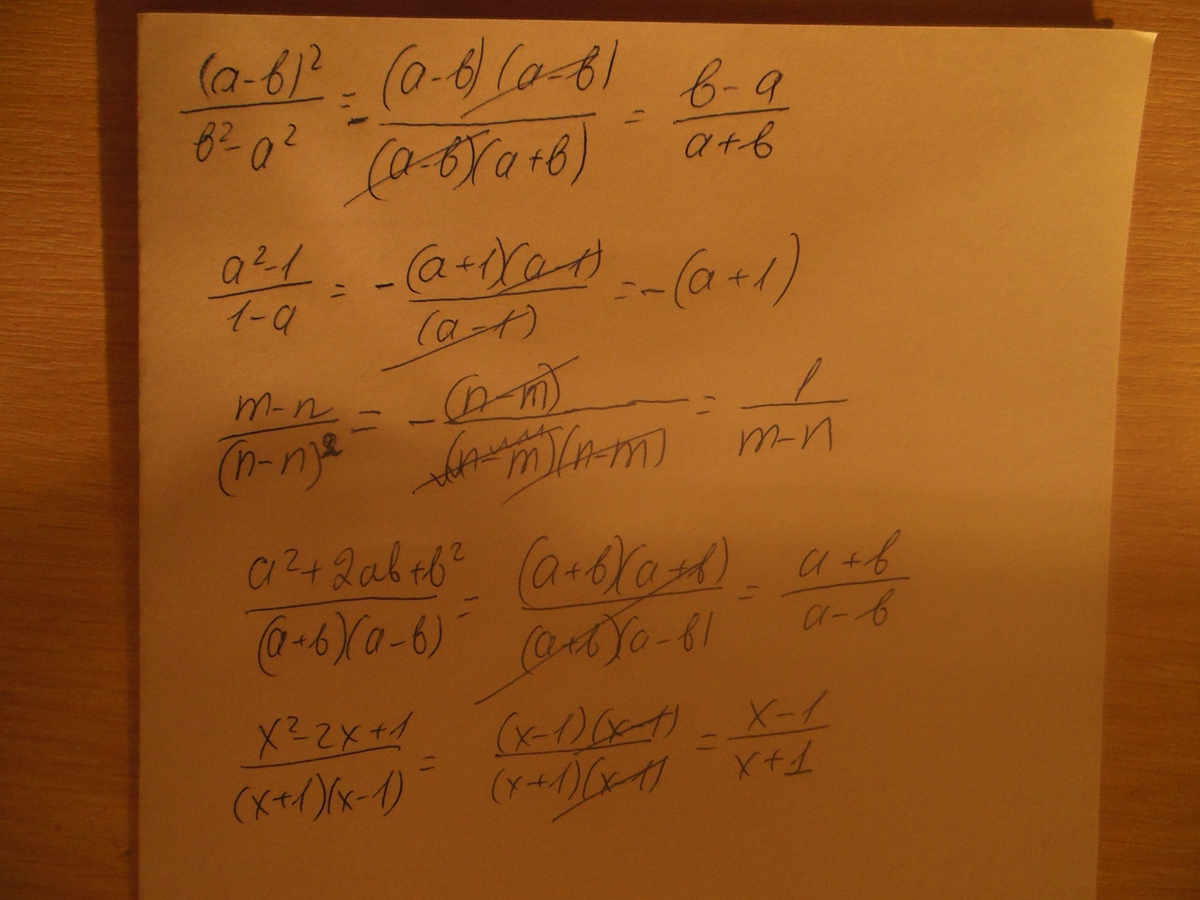 (a-b)²/(b²-a²) = -(a-b)(a-b)/((a-b)(a+b)) = (b-a)/(a+b)
(a²-1)/(1-a) = -(a+1)(a-1)/(a-1) = -(a+1)
(m-n)/(n-n)² = -(n-m)/((n-m)(n-m)) = 1/(m-n)
(a²+2ab+b²)/((a+b)(a-b)) = (a+b)(a+b)/((a+b)(a-b)) = (a+b)/(a-b)
(x²-2x+1)/((x+1)(x-1)) = (x-1)(x-1)/((x+1)(x-1)) = (x-1)/(x+1)